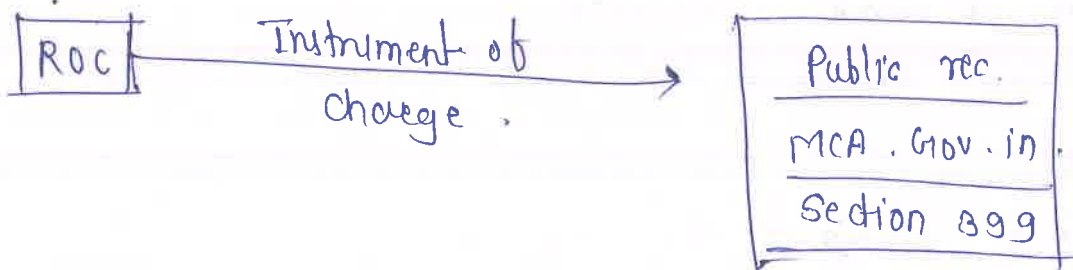 ROC
Instrument of
Charge.
Public rec.
MCA.Gov.in.
Section 399